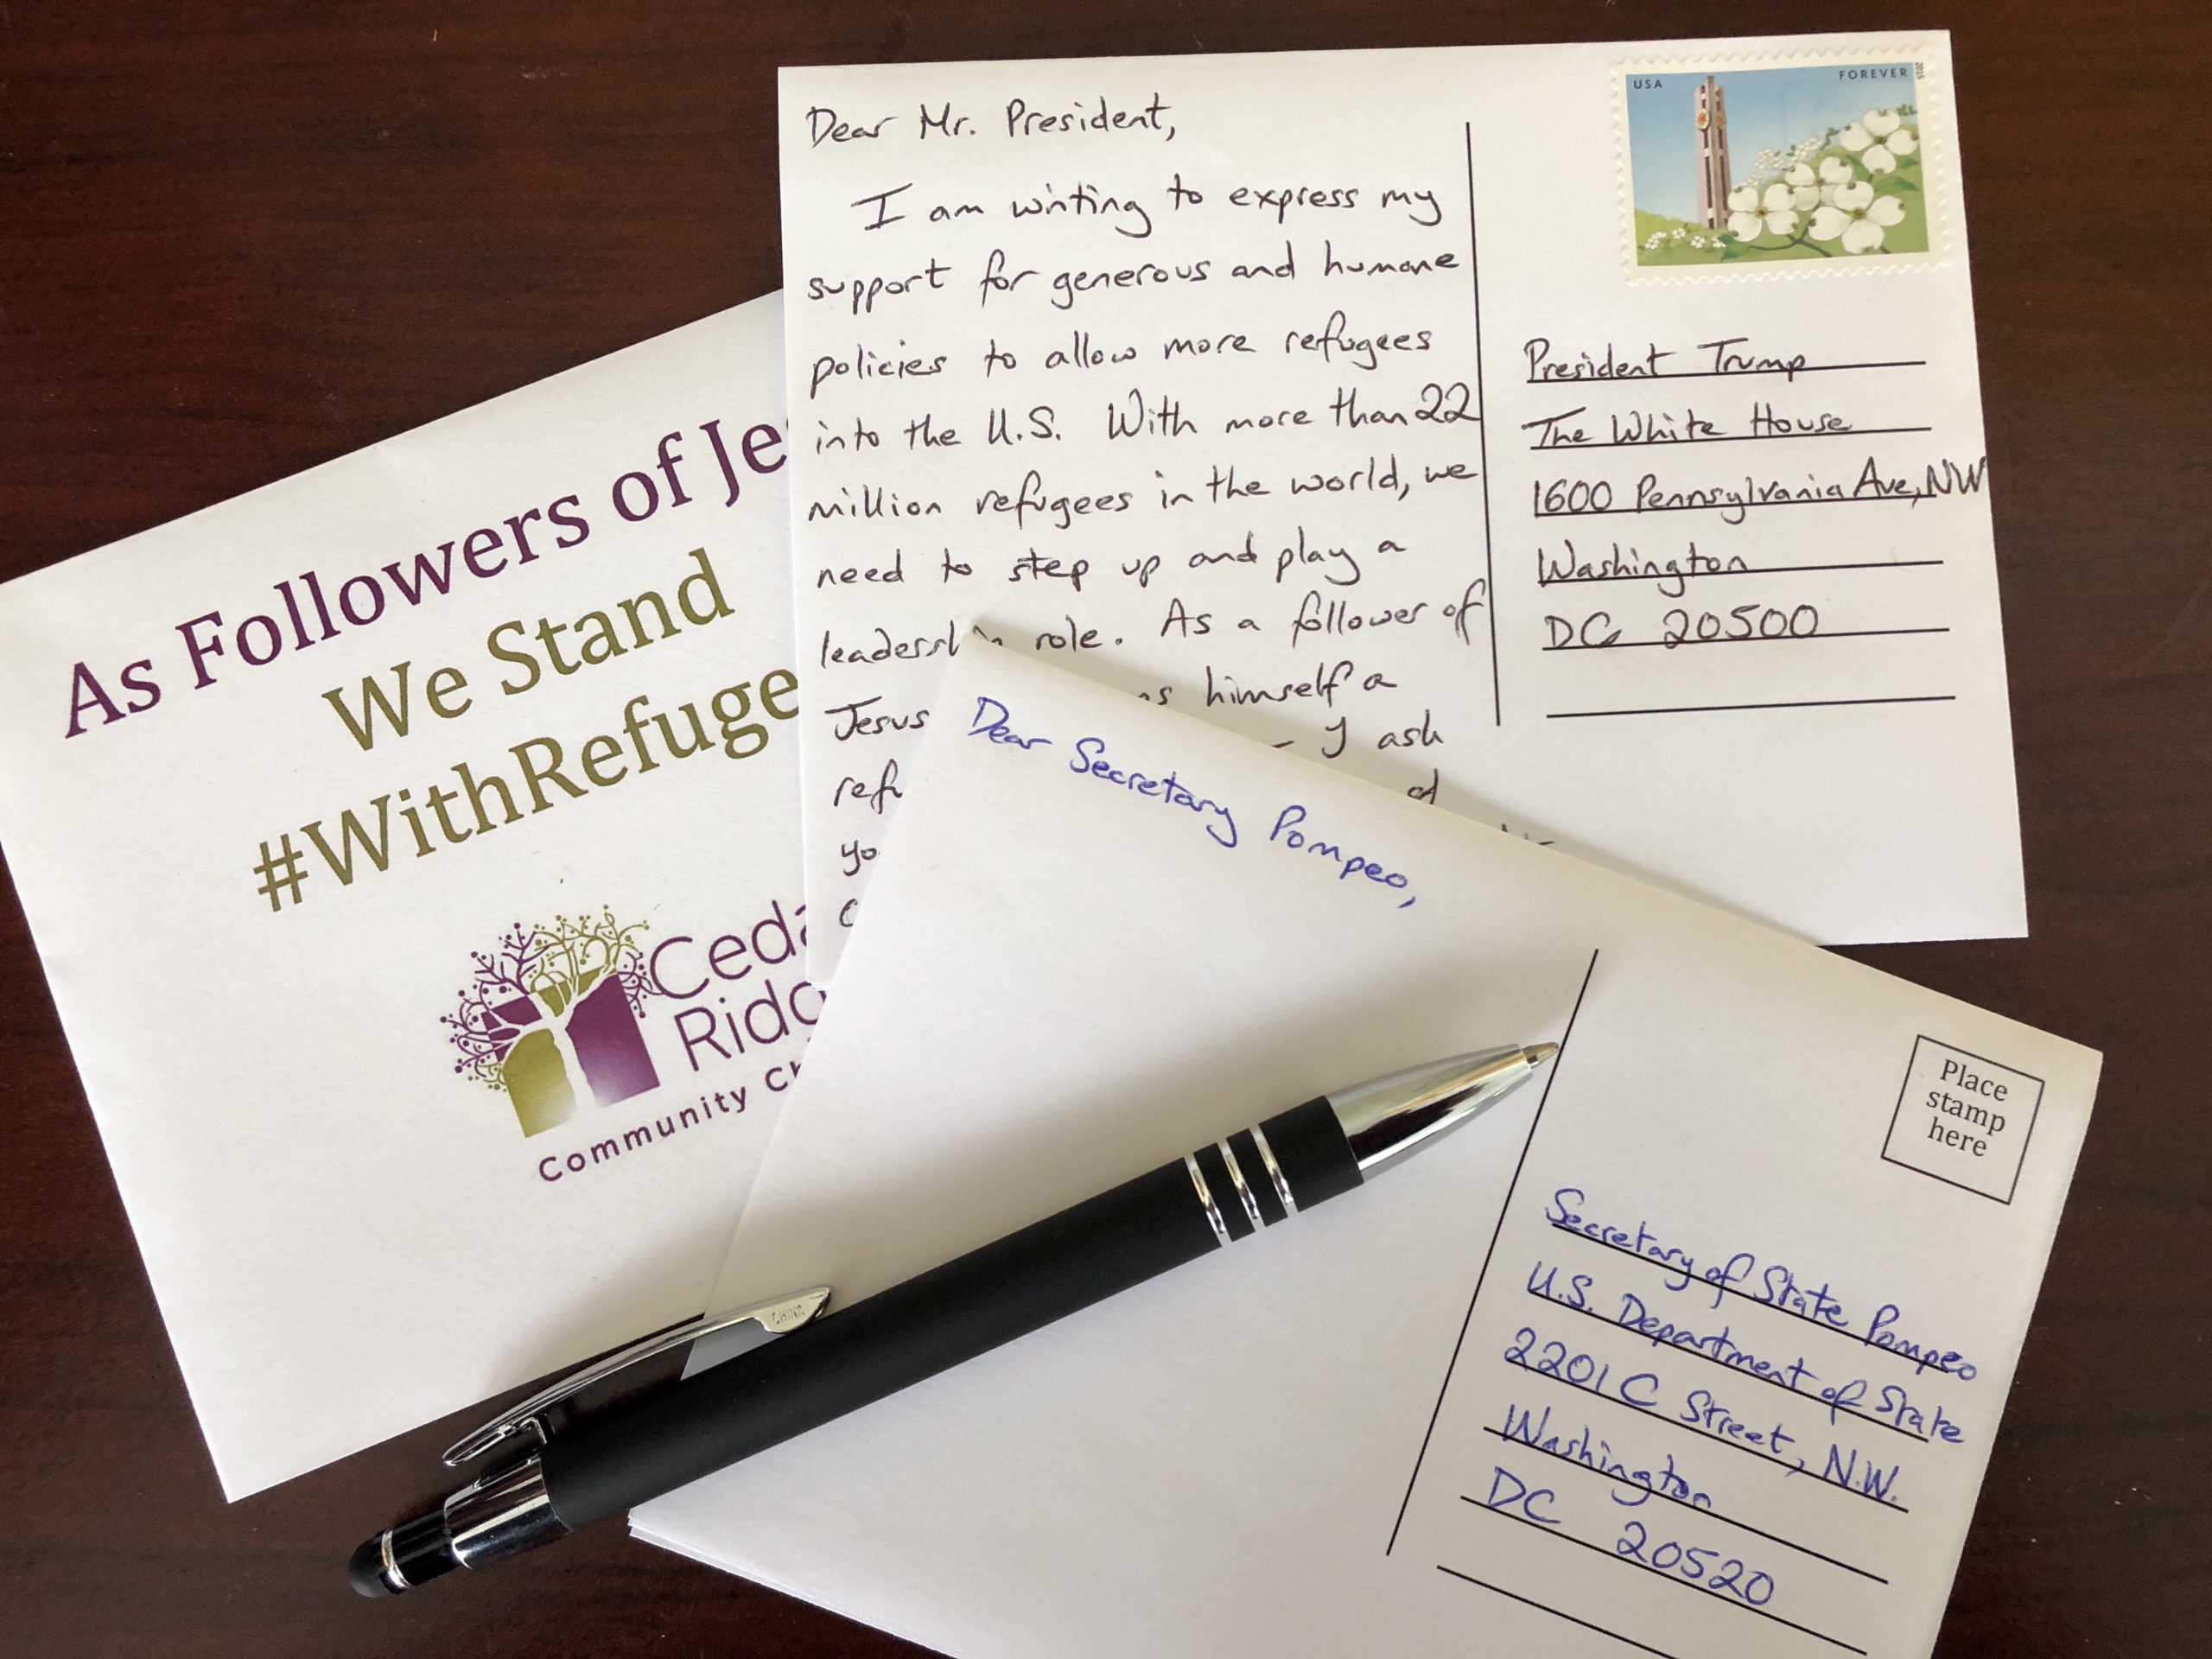 As Followers of Je
We Stand
#WithRefuge
Ceda
Ridg
Community Ch
Dear Mr. President,
I am writing to express my
support for generous and humane
policies to allow more refugees
into the U.S. With more than 22
million refugees in the world, we
need to step up and play a
role. As a follower of
Jesus himself a
ask
USA
FOREVER
2016
President Trump
The White House
1600 Pennsylvania Ave, NW
Washington
DC 20500
Dear Secretary Pompeo,
Place
stamp
here
Secretary of State Pompeo
U.S. Department of State
2201 C Street, N.W.
Washington
DC 20520
CHINA